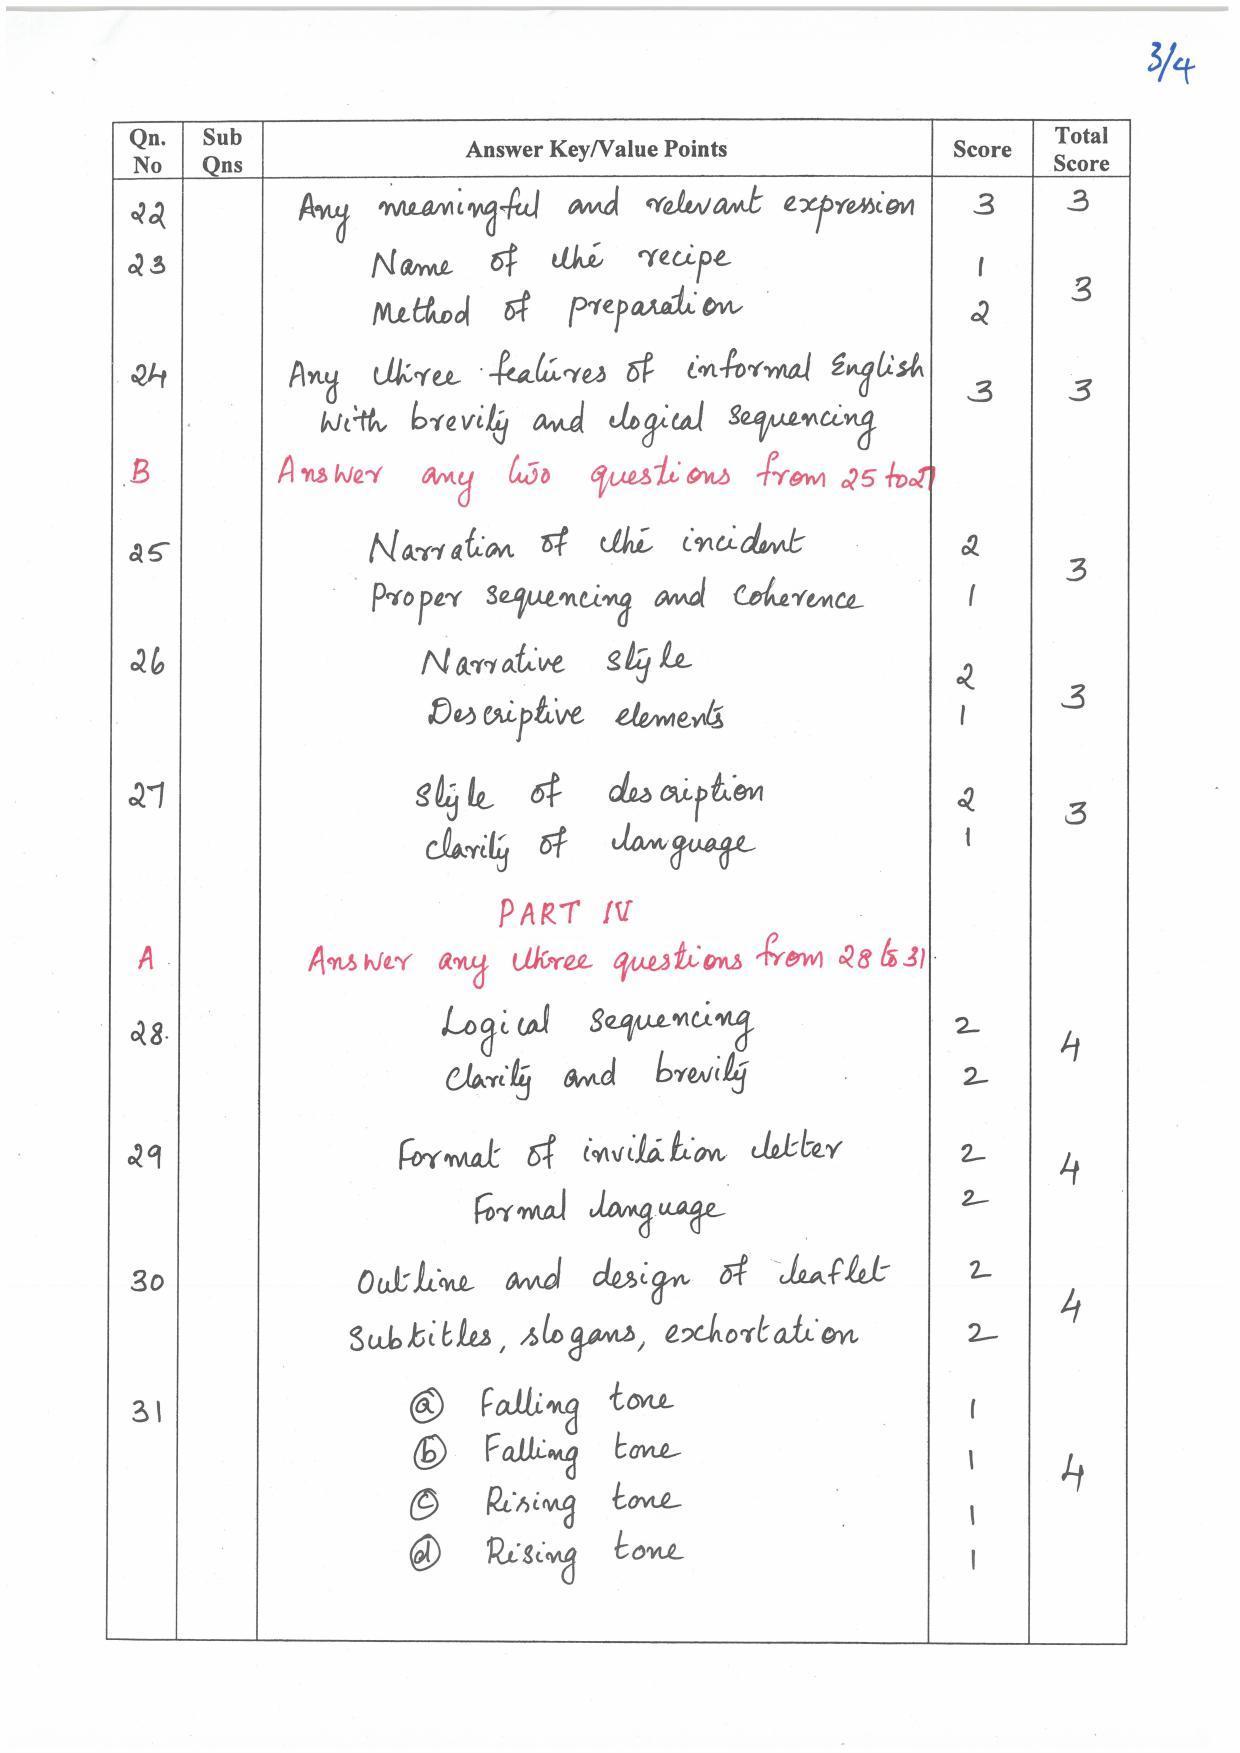 3/4
Qn. No Sub Qns Answer Key/Value Points Score Total Score
22 Any meaningful and relevant expression 3 3
23 Name of the recipe 1 3
Method of preparation 2
24 Any three features of informal English 3 3
with brevity and logical sequencing
B Answer any two questions from 25 to 27
25 Narration of the incident 2 3
Proper sequencing and coherence 1
26 Narrative style 2 3
Descriptive elements 1
27 Style of description 2 3
clarity of language 1
PART IV
A Answer any three questions from 28 to 31
28. Logical sequencing 2 4
Clarity and brevity 2
29 Format of invitation letter 2 4
Formal language 2
30 Outline and design of leaflet 2 4
Subtitles, slogans, exhortation 2
31 (a) Falling tone 1 4
(b) Falling tone 1
(c) Rising tone 1
(d) Rising tone 1